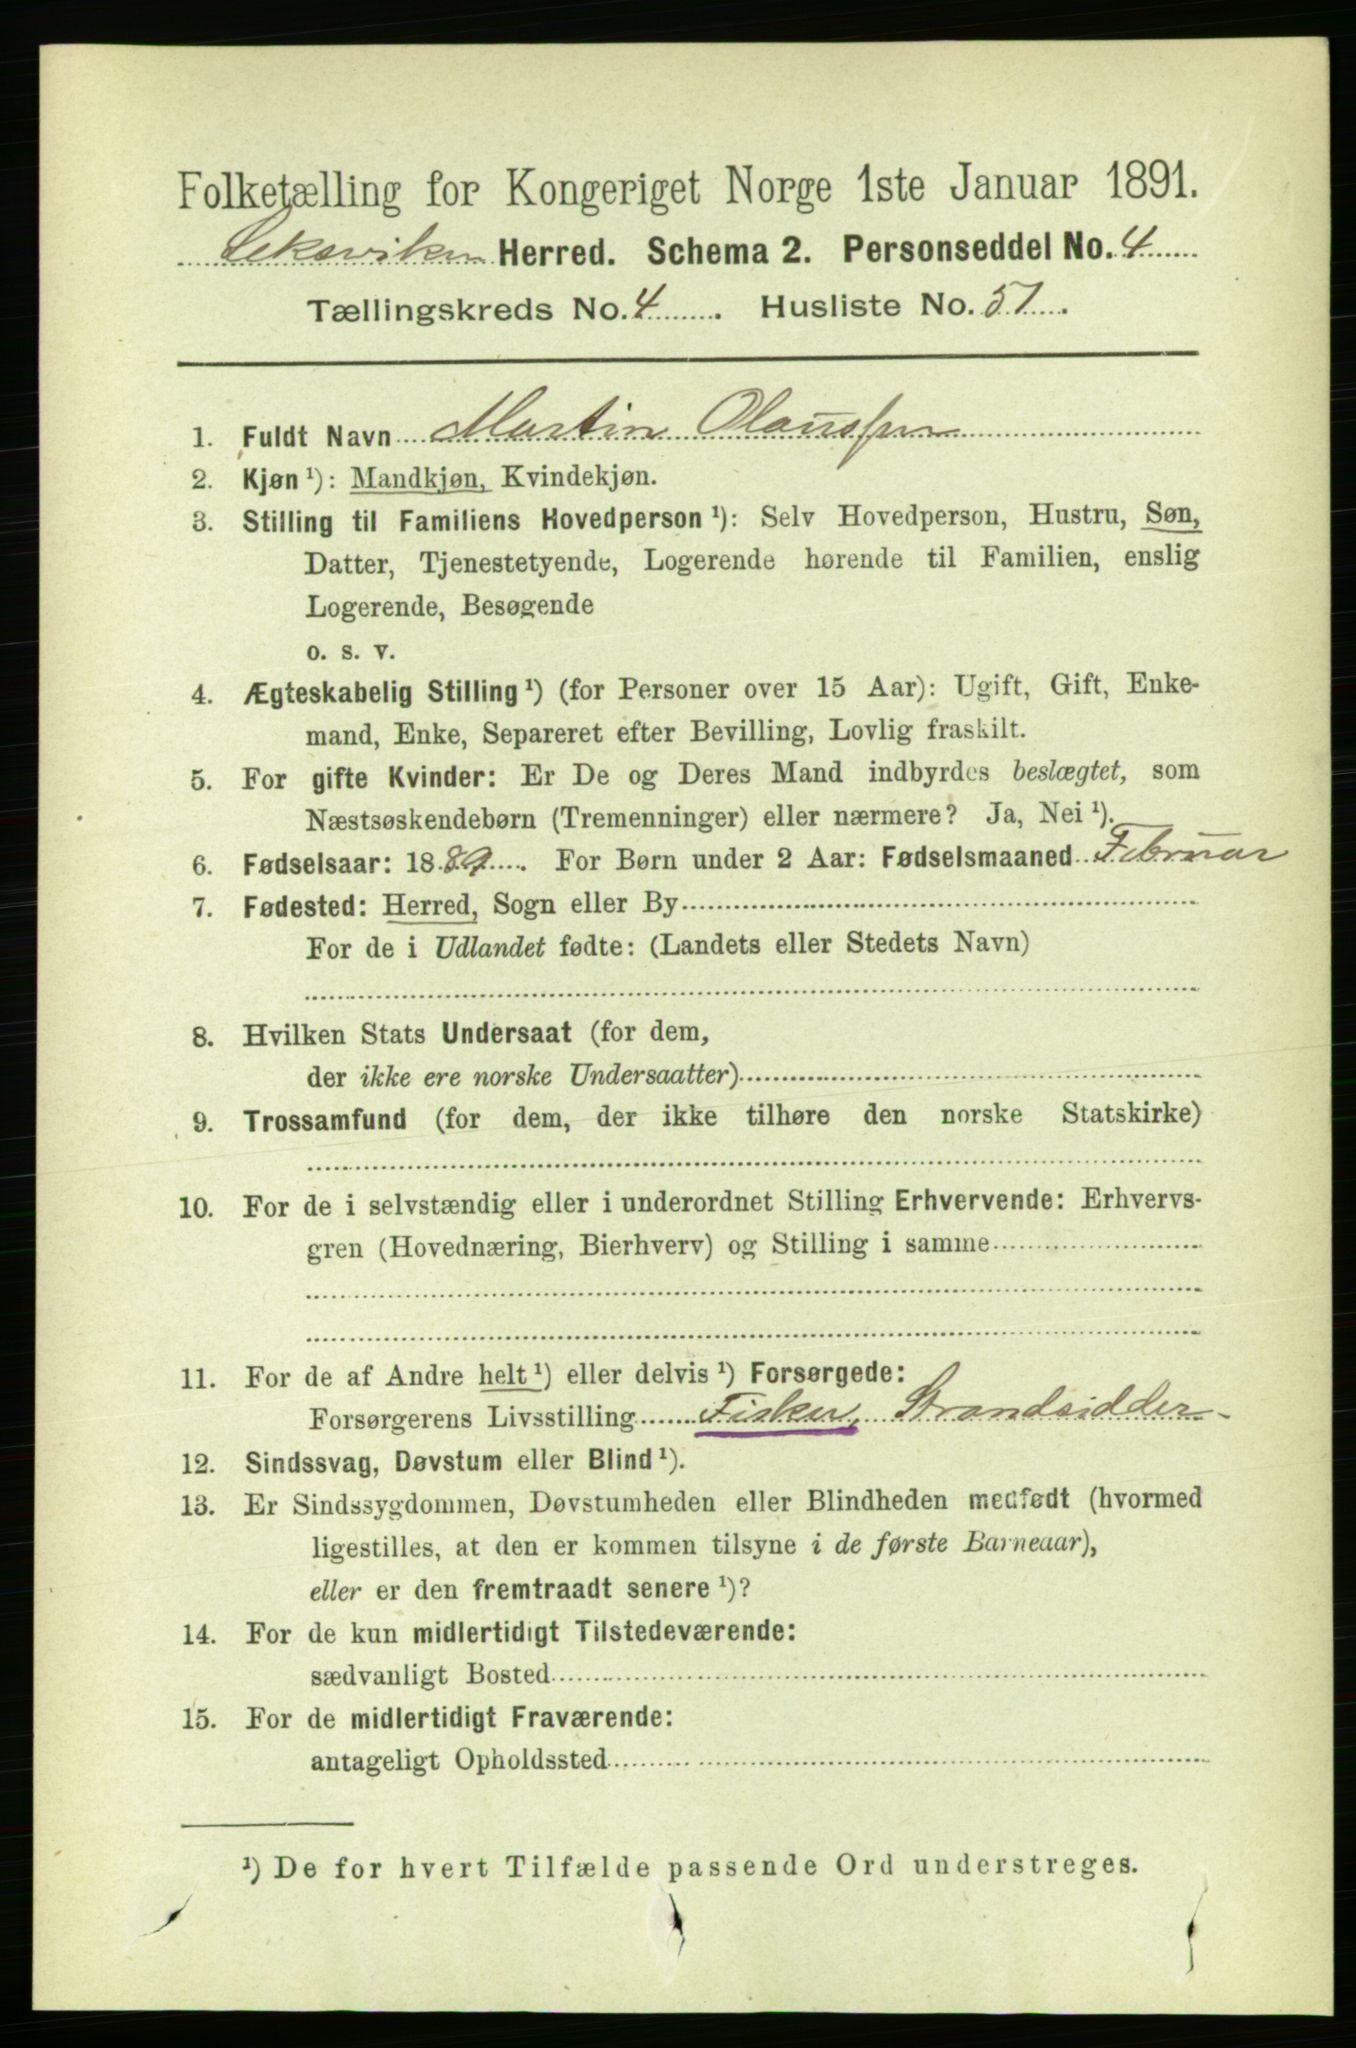 Folketælling for Kongeriget Norge 1ste Januar 1891.
Leksviken Herred. Schema 2. Personseddel No. 4
Tællingskreds No. 4. Husliste No. 51.
1. Fuldt Navn Martin Olaussen
2. Kjøn¹): Mandkjøn, Kvindekjøn.
3. Stilling til Familiens Hovedperson¹): Selv Hovedperson, Hustru, Søn,
Datter, Tjenestetyende, Logerende hørende til Familien, enslig
Logerende, Besøgende
o. s. v.
4. Ægteskabelig Stilling¹) (for Personer over 15 Aar): Ugift, Gift, Enke-
mand, Enke, Separeret efter Bevilling, Lovlig fraskilt.
5. For gifte Kvinder: Er De og Deres Mand indbyrdes beslægtet, som
Næstsøskendebørn (Tremenninger) eller nærmere? Ja, Nei¹).
6. Fødselsaar: 1889. For Børn under 2 Aar: Fødselsmaaned Februar
7. Fødested: Herred, Sogn eller By
For de i Udlandet fødte: (Landets eller Stedets Navn)
8. Hvilken Stats Undersaat (for dem,
der ikke ere norske Undersaatter)
9. Trossamfund (for dem, der ikke tilhøre den norske Statskirke)
10. For de i selvstændig eller i underordnet Stilling Erhvervende: Erhvervs-
gren (Hovednæring, Bierhverv) og Stilling i samme
11. For de af Andre helt¹) eller delvis¹) Forsørgede:
Forsørgerens Livsstilling Fisker, Strandsidder
12. Sindssvag, Døvstum eller Blind¹).
13. Er Sindssygdommen, Døvstumheden eller Blindheden medfødt (hvormed
ligestilles, at den er kommen tilsyne i de første Barneaar),
eller er den fremtraadt senere¹)?
14. For de kun midlertidigt Tilstedeværende:
sædvanligt Bosted
15. For de midlertidigt Fraværende:
antageligt Opholdssted
¹) De for hvert Tilfælde passende Ord understreges.